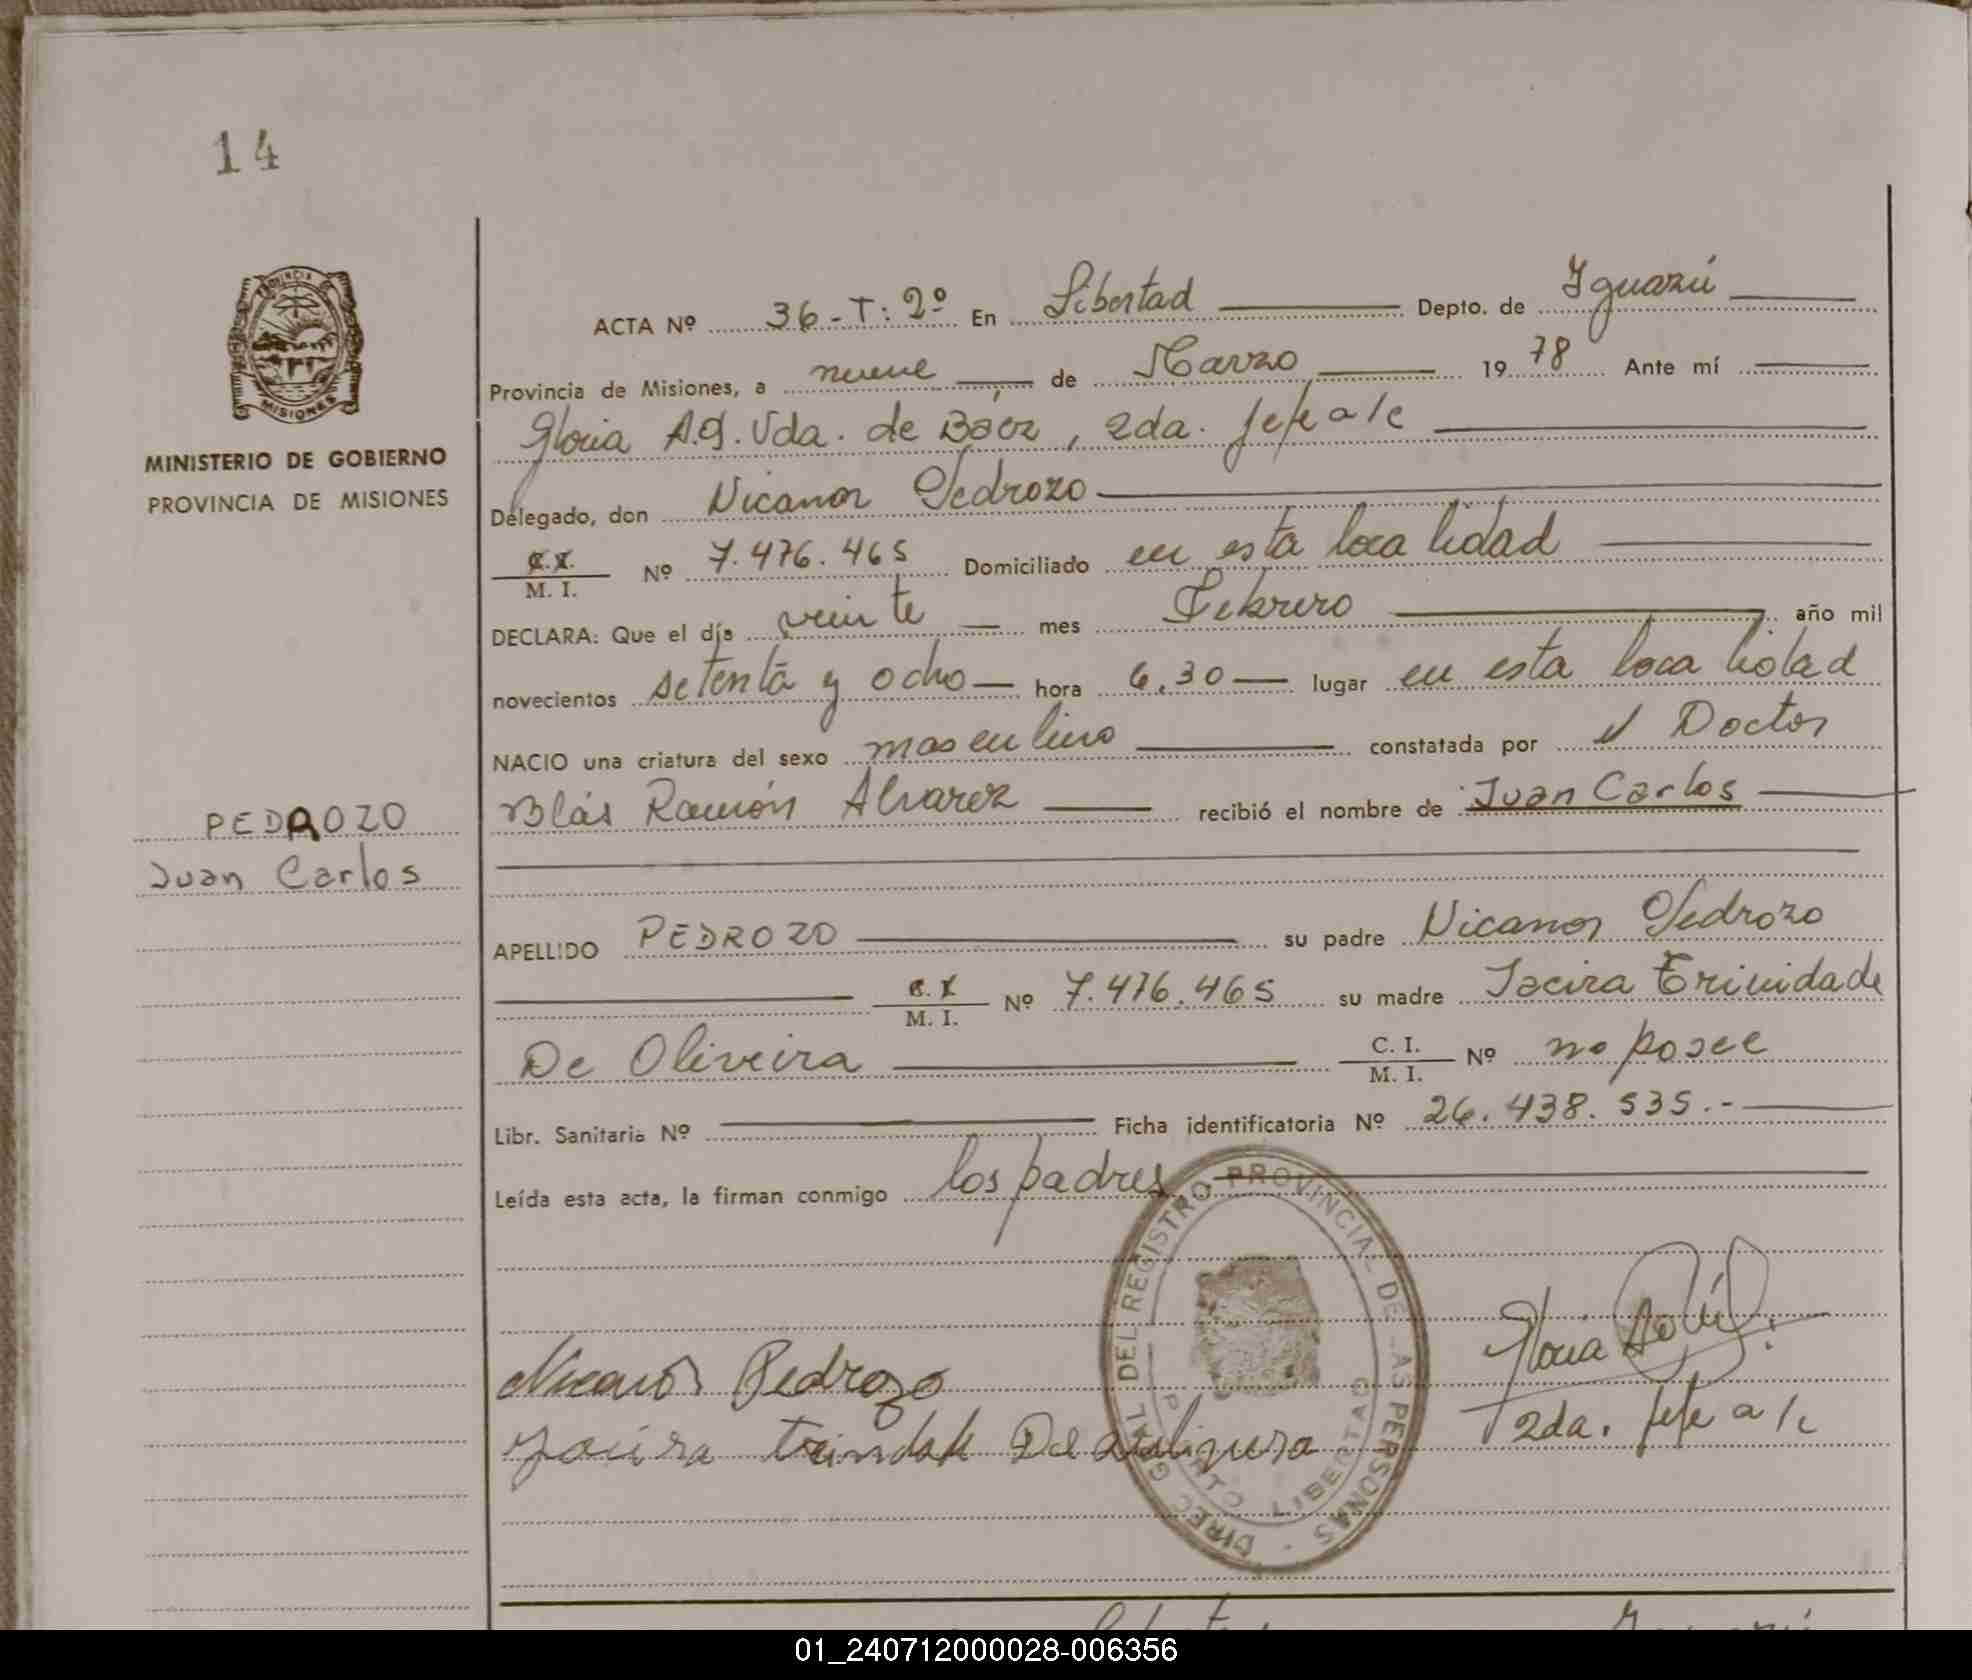 14
PROVINCIA
MISIONES
MINISTERIO DE GOBIERNO
PROVINCIA DE MISIONES
PEDROZO
Juan Carlos
ACTA Nº 36-T: 2º En Libertad Depto. de Iguazú
Provincia de Misiones, a nueve de Marzo 1978 Ante mí
Gloria A.G. Vda. de Báez, 2da. jefe a/c
Delegado, don Nicanor Pedrozo
C.I. M. I. Nº 7.476.465 Domiciliado en esta localidad
DECLARA: Que el día veinte mes Febrero año mil
novecientos setenta y ocho hora 6,30 lugar en esta localidad
NACIO una criatura del sexo masculino constatada por el Doctor
Blás Ramón Alvarez recibió el nombre de Juan Carlos
APELLIDO PEDROZO su padre Nicanor Pedrozo
C. I. M. I. Nº 7.476.465 su madre Jacira Trinidade
De Oliveira C. I. M. I. Nº no posee
Libr. Sanitaria Nº Ficha identificatoria Nº 26.438.535.-
Leída esta acta, la firman conmigo los padres
DIREC. GRAL DEL REGISTRO PROVINCIAL DE LAS PERSONAS
PTO. LIBERTAD
Nicanor Pedrozo
Gloria
2da. jefe a/c
01_240712000028-006356